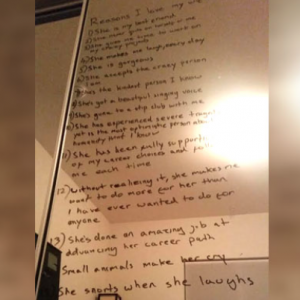 Reasons I love my wife
1) She is my best friend
2) She never gives up on
She gives me time to work on
my crazy projects
4) She makes me laugh, every day
5) She is gorgeous
6) She accepts the crazy person
I am
7) She's the kindest person I know
8) She's got a beautiful singing voice
9) She's gone to a strip club with me
10) She has experienced severe
yet is the most optimistic person about
humanity that I know
11) She has been fully supportive
of my career choices and
me each time
12) Without realizing it, she makes me
want to do more for her than
I have ever wanted to do for
anyone
13) She's done an amazing job at
advancing her career path
Small animals make her cry
She snorts when she laughs